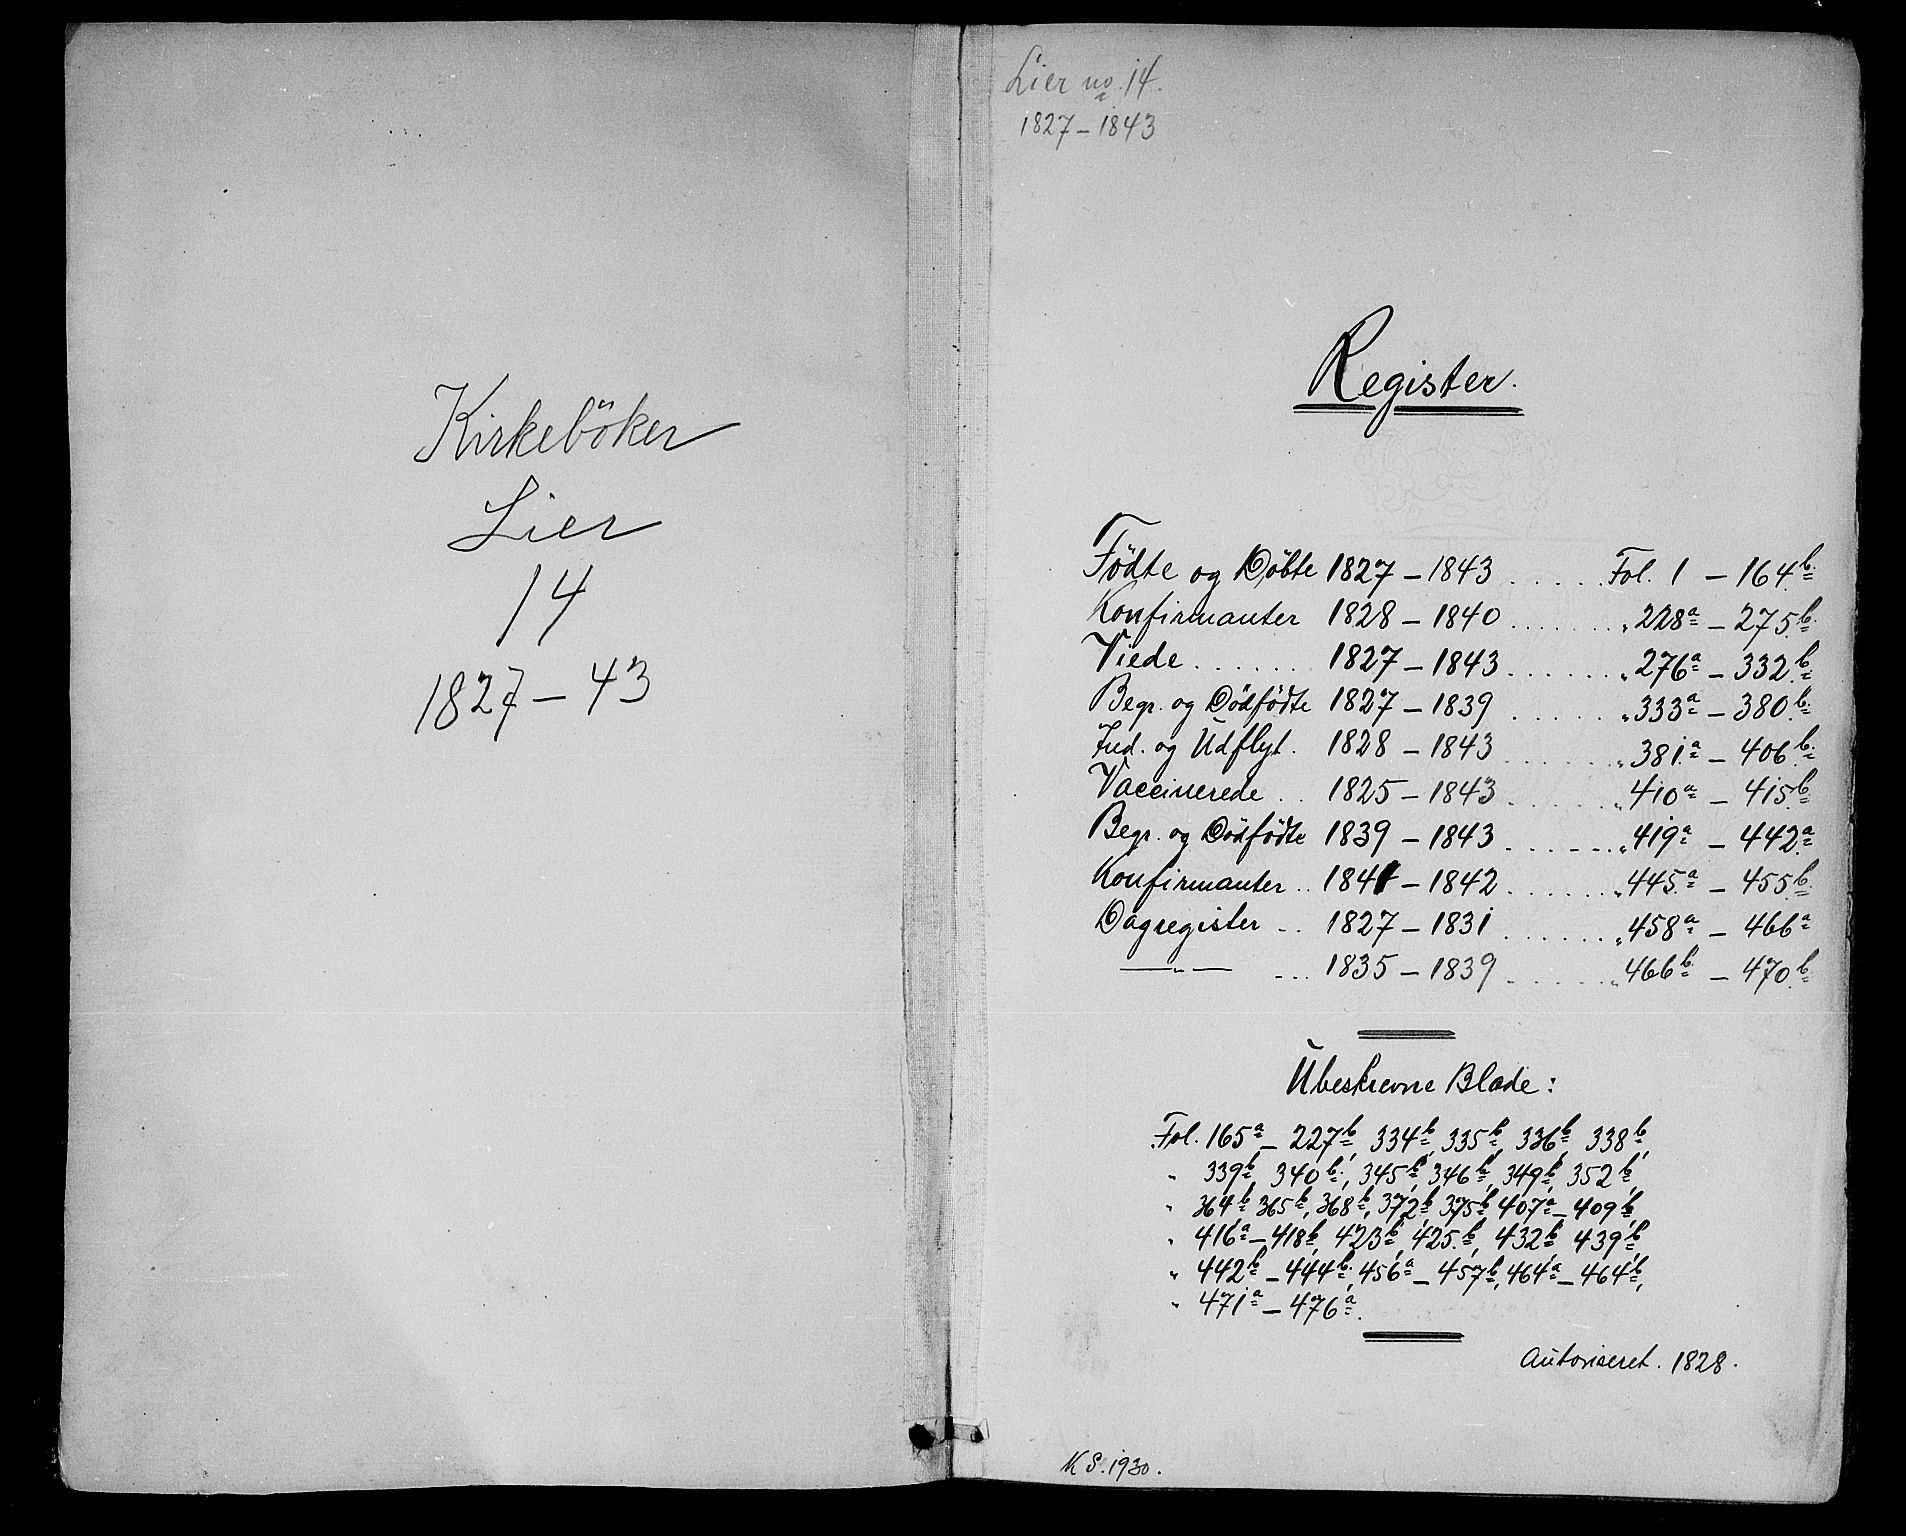 Kirkeböker
Lier
14
1827 – 43
Lier no. 14.
1827 – 1843
Register.
Födte og Döbte 1827 – 1843 ..... Fol. 1 – 164b.
Konfirmanter 1828 – 1840 ....... „ 228a – 275b.
Viede ....... 1827 – 1843 ....... „ 276a – 332b.
Begr. og Dödfödte 1827 – 1839 ...... „ 333a – 380b.
Ind. og Udflyt. 1828 – 1843 ....... „ 381a – 406b.
Vaccinerede .. 1825 – 1843 ....... „ 410a – 415b
Begr. og Dödfödte 1839 – 1843 ....... „ 419a – 442a.
Konfirmanter .. 1841 – 1842 ....... „ 445a – 455b.
Dagregister ... 1827 – 1831 ....... „ 458a – 466a
—„— ... 1835 – 1839 ....... „ 466b – 470b.
Ubeskrevne Blade:
Fol. 165a – 227b, 334b, 335b, 336b, 338b,
„ 339b, 340b, 345b, 346b, 349b, 352b,
„ 364b, 365b, 368b, 372b, 375b, 407a – 409b,
„ 416a – 418b, 423b, 425b, 432b, 439b,
„ 442b – 444b, 456a – 457b, 464a – 464b,
„ 471a – 476a.
Autoriseret. 1828.
K S. 1930.